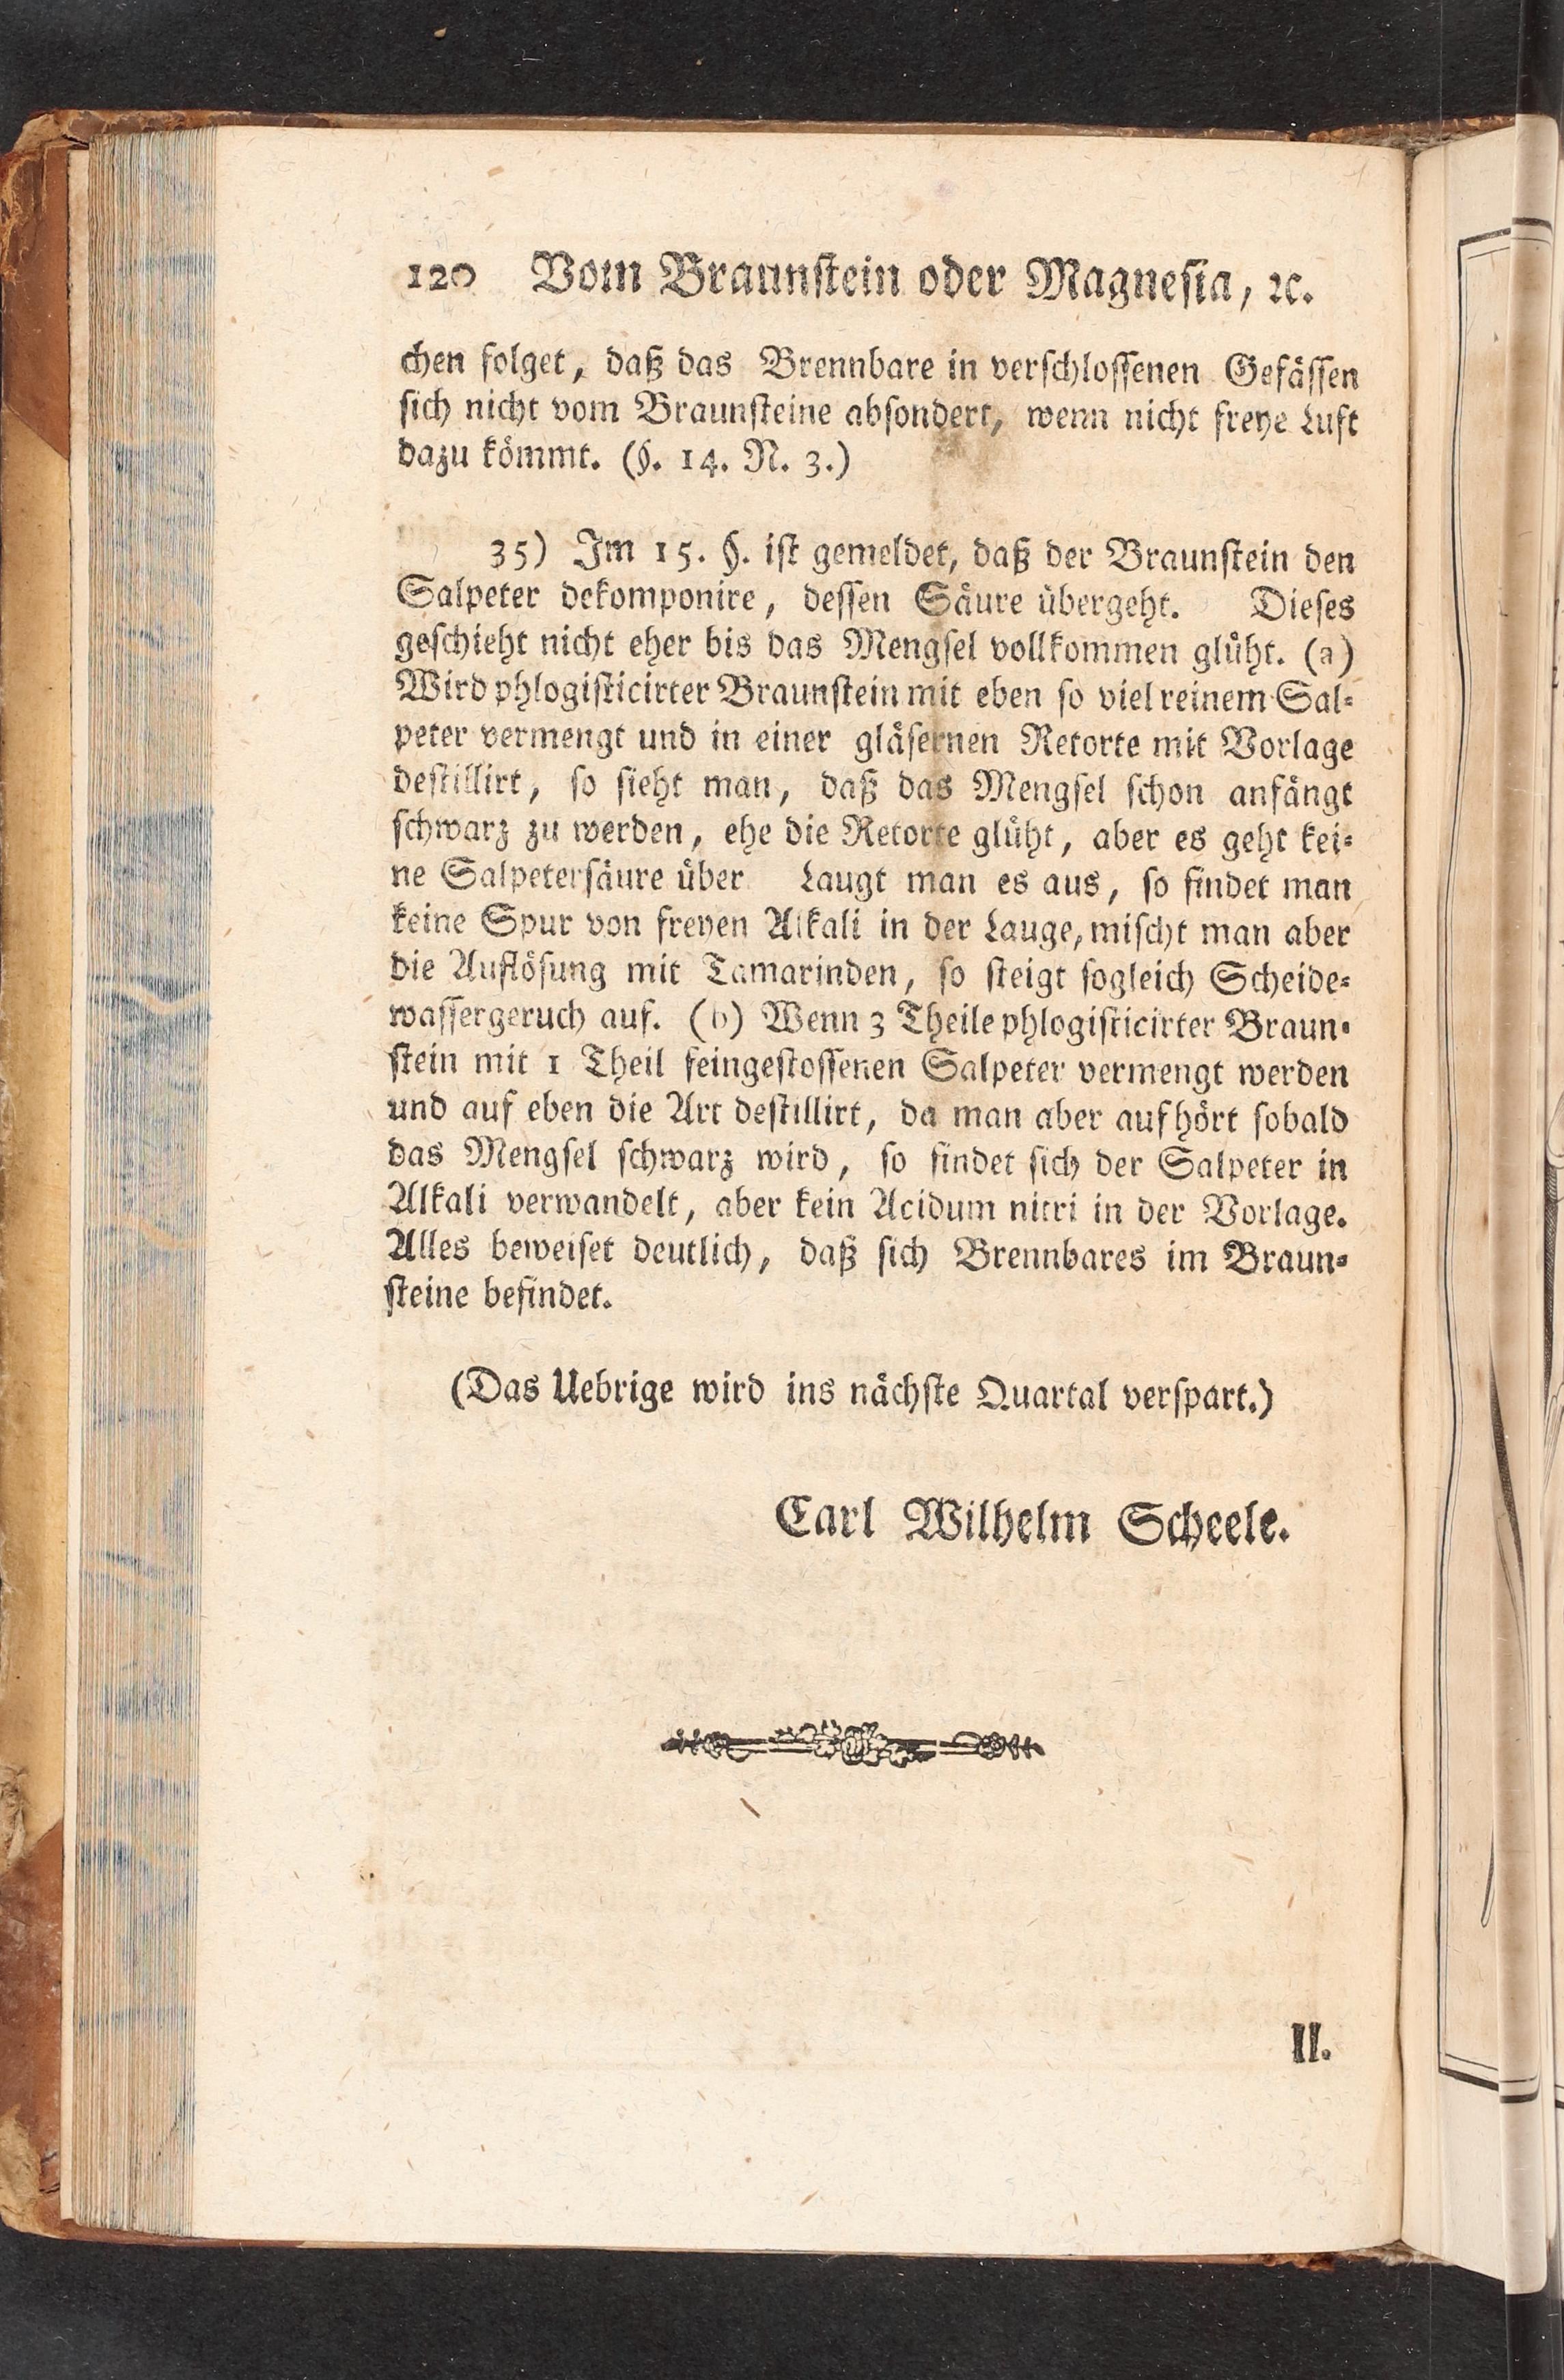 120 Vom Braunſtein oder Magneſia, ꝛc.
chen folget, daß das Brennbare in verſchloſſenen Gefäſſen
ſich nicht vom Braunſteine abſondert, wenn nicht freye Luft
dazu kömmt. (§. 14. N. 3.)
35) Im 15. §. iſt gemeldet, daß der Braunſtein den
Salpeter dekomponire, deſſen Säure übergeht. Dieſes
geſchieht nicht eher bis das Mengſel vollkommen glüht. (a)
Wird phlogiſticirter Braunſtein mit eben ſo viel reinem Sal-
peter vermengt und in einer gläſernen Retorte mit Vorlage
deſtillirt, ſo ſieht man, daß das Mengſel ſchon anfängt
ſchwarz zu werden, ehe die Retorte glüht, aber es geht kei-
ne Salpeterſäure über Laugt man es aus, ſo findet man
keine Spur von freyen Alkali in der Lauge, miſcht man aber
die Auflöſung mit Tamarinden, ſo ſteigt ſogleich Scheide-
waſſergeruch auf. (b) Wenn 3 Theile phlogiſticirter Braun-
ſtein mit 1 Theil feingeſtoſſenen Salpeter vermengt werden
und auf eben die Art deſtillirt, da man aber aufhört ſobald
das Mengſel ſchwarz wird, ſo findet ſich der Salpeter in
Alkali verwandelt, aber kein Acidum nitri in der Vorlage.
Alles beweiſet deutlich, daß ſich Brennbares im Braun-
ſteine befindet.
(Das Uebrige wird ins nächſte Quartal verſpart.)
Carl Wilhelm Scheele.
II.